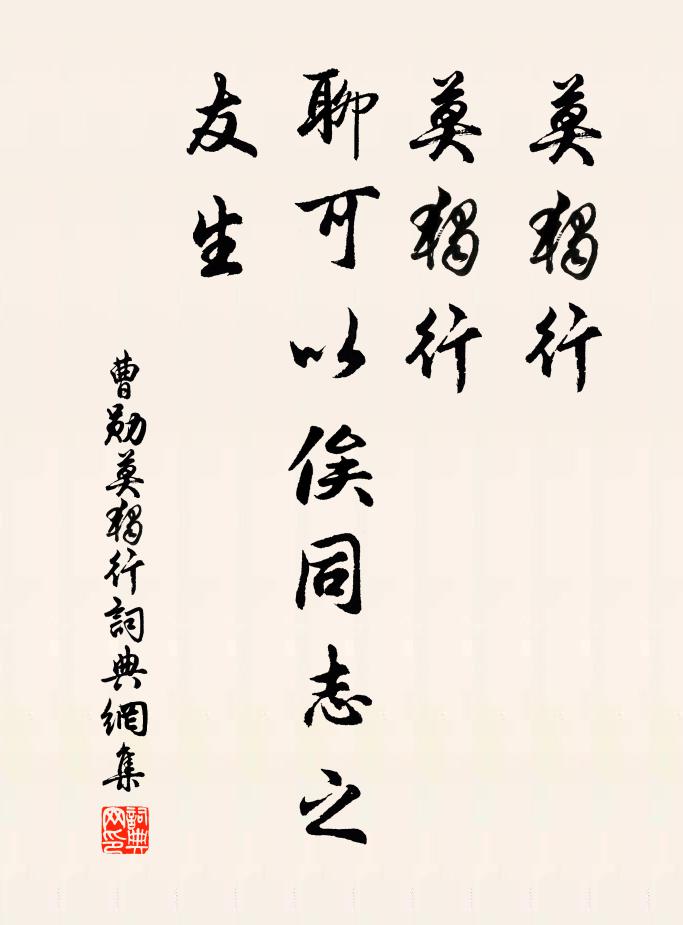 莫獨行
莫獨行
聊可以俟同志之
友生
曹勛莫獨行詞典網集
詞典
网印